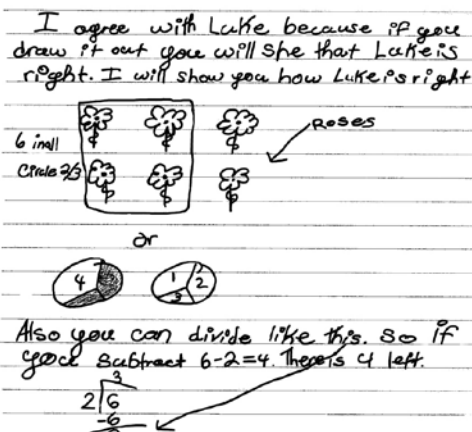 I agree with Luke because if you
draw it out you will she that Luke is
right. I will show you how Luke is right
Roses
6 inall
Circle 2/3
or
4
1 2
3
Also you can divide like this. So if
you subtract 6-2=4. There is 4 left.
3
2 6
-6
0